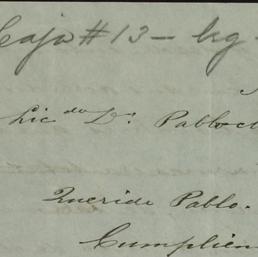 Caja # 13 — Leg
Lic.do D.n Pablo
Querido Pablo.
Cumplien